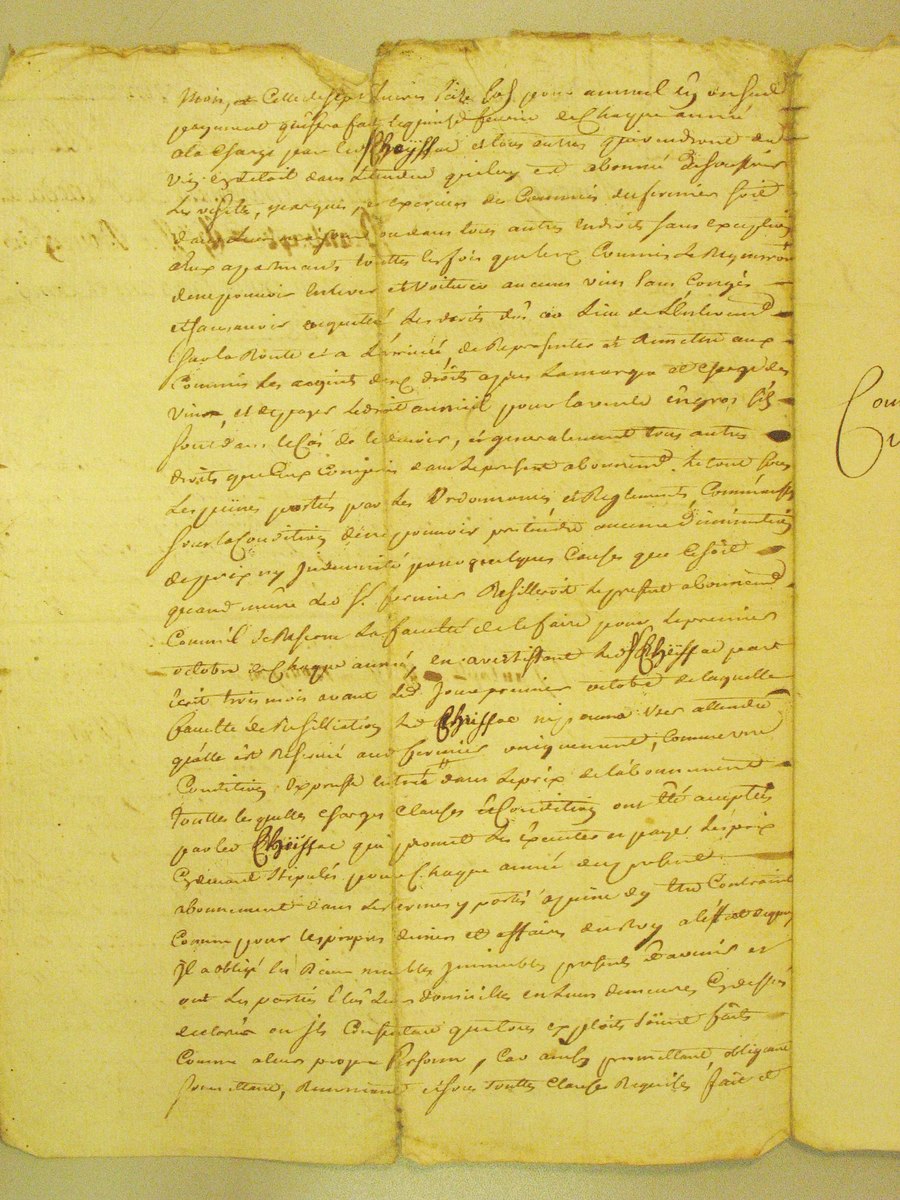 mois, et celle de sept livres seize sols pour annuel en un seul
payement qui sera fait le quinze fevrier de Chaque année
a la Charge par led Cheyssac et tous autres qui vendront du
vin en detail dans l'etendue quil est abonné de souffrir
les visite, marques, et exercices des Commis du fermier soit
dans leurs maisons ou dans tous autres Endroits sans exception
touttes les fois que les Commis le
de ne pouvoir Enlever et voiturer aucuns vins sans Congés
et sans avoir acquitté les droits dûs au lieu de l'Enlevement
Sur la Route et a l'arrivée, de Representer et Remettre aux
Commis les acquits desd droits apres la marque et charge des
vins, et de payer le droit annuel pour la vente en gros
sont dans le Cas de le devoir, et generalement tous autres
droits que ceux Compris dans le present abonnement. le tout sous
les peines portées par les Ordonnances et Reglements, Comme aussy
sous la Condition de ne pouvoir pretendre aucune Diminution
de prix ny Indemnité pour quelques Causes que ce soit
quand même led Sr. fermier Resilieroit le present abonnement
Comme il se Reserve la faculté de le faire pour le premier
octobre de Chaque année, en avertissant led Cheyssac par
écrit trois mois avant led Jour premier octobre de laquelle
faculté de Resiliation led Cheissac ne pourra user attendu
qu'elle est Reservée aud fermier uniquement, Comme une
Condition Expresse entrée dans le prix de l'abonnement
Touttes lesquelles charges Clauses et Conditions ont été acceptées
par led Cheissac qui promet les executer et payer les prix
Cydevant stipulés pour Chaque année du present
abonnement dans les termes y portés a peine dy etre Contraint
Comme pour les propres deniers et affaires du Roy a l'effet de quoy
Il a obligé ses Biens meubles Immeubles presents et avenir et
ont les parties Elû leurs domicilles en leurs demeures Cydessus
declarées ou ils Consentent que tous exploits soient faits
Comme a leurs propre personne, Car ainsy promettant, obligeant
soumettant, Renonceant et sous touttes Clauses Requises fait et